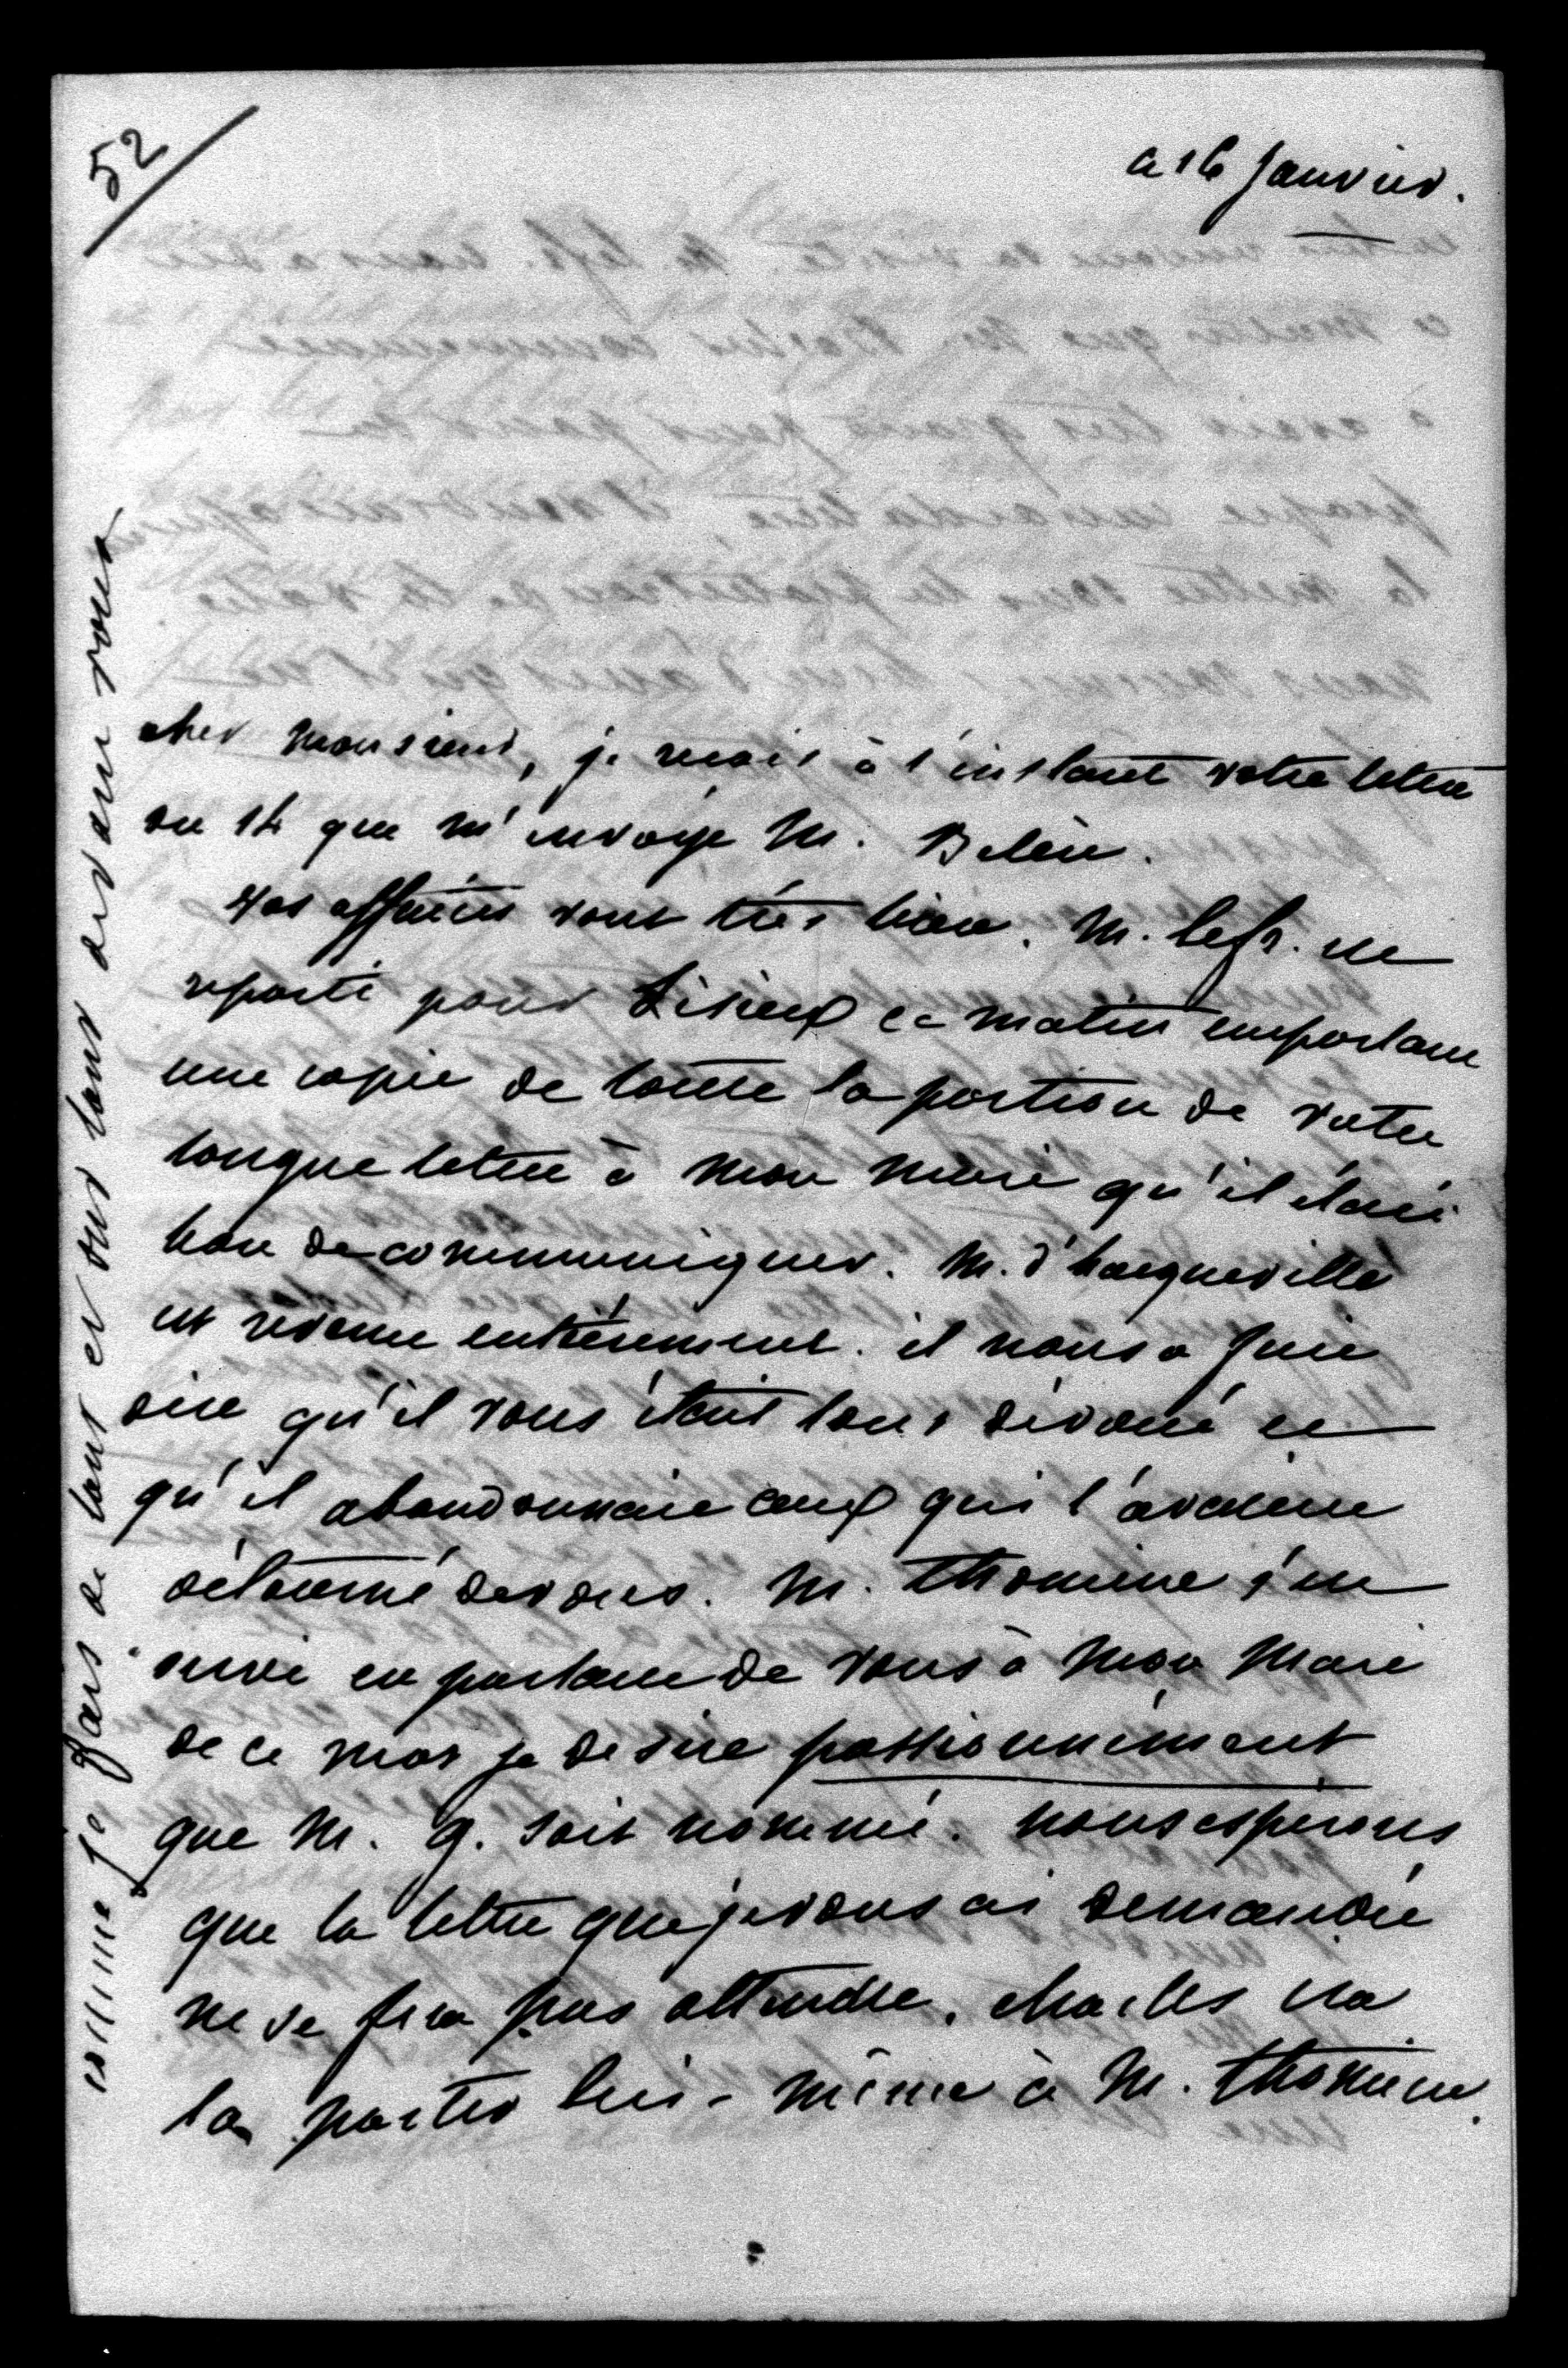 52
ce 16 Janvier.
cher monsieur, je recois à l'instant votre lettre
du 14 que m'envoye M.
vos affaires vont très bien. M. Lefr. est
reparti pour Lisieux ce matin emportant
une copie de toute la portion de votre
longue lettre à mon mari qu'il étoit
bon de communiquer. M. d'hacqueville
est revenu entièrement. il nous a fait
dire qu'il vous étoit tout dévoué et
qu'il abandonnait ceux qui l'avaient
détourné de vous. M. Thomine s'est
servi en parlant de vous à mon mari
de ce mot je desire passionnément
que M. G. soit nommé. nous espérons
que la lettre que je vous ai demandée
ne se fera pas attendre. charles ira
la porter lui-même à M. Thomine.
estime je fais de tout et sur tout devant vous